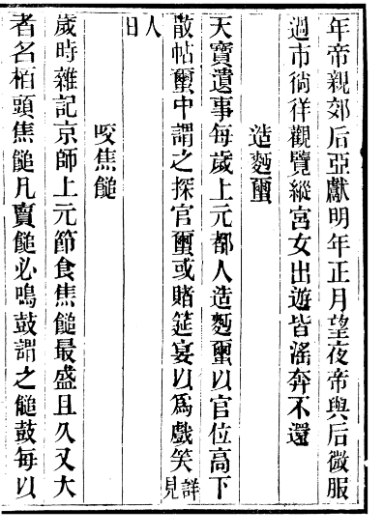 年帝親郊后亞獻明年正月望夜帝與后微服
過市徜徉觀覽縱宮女出遊皆滛奔不還
造麪蠒
天寶遺事每歲上元都人造麪蠒以官位高下
散帖蠒中謂之探官蠒或賭筵宴以爲戲笑詳見
人日
咬焦䭔
歲時雜記京師上元節食焦䭔最盛且久又大
者名栢頭焦䭔凡賣䭔必鳴鼓謂之䭔鼓每以